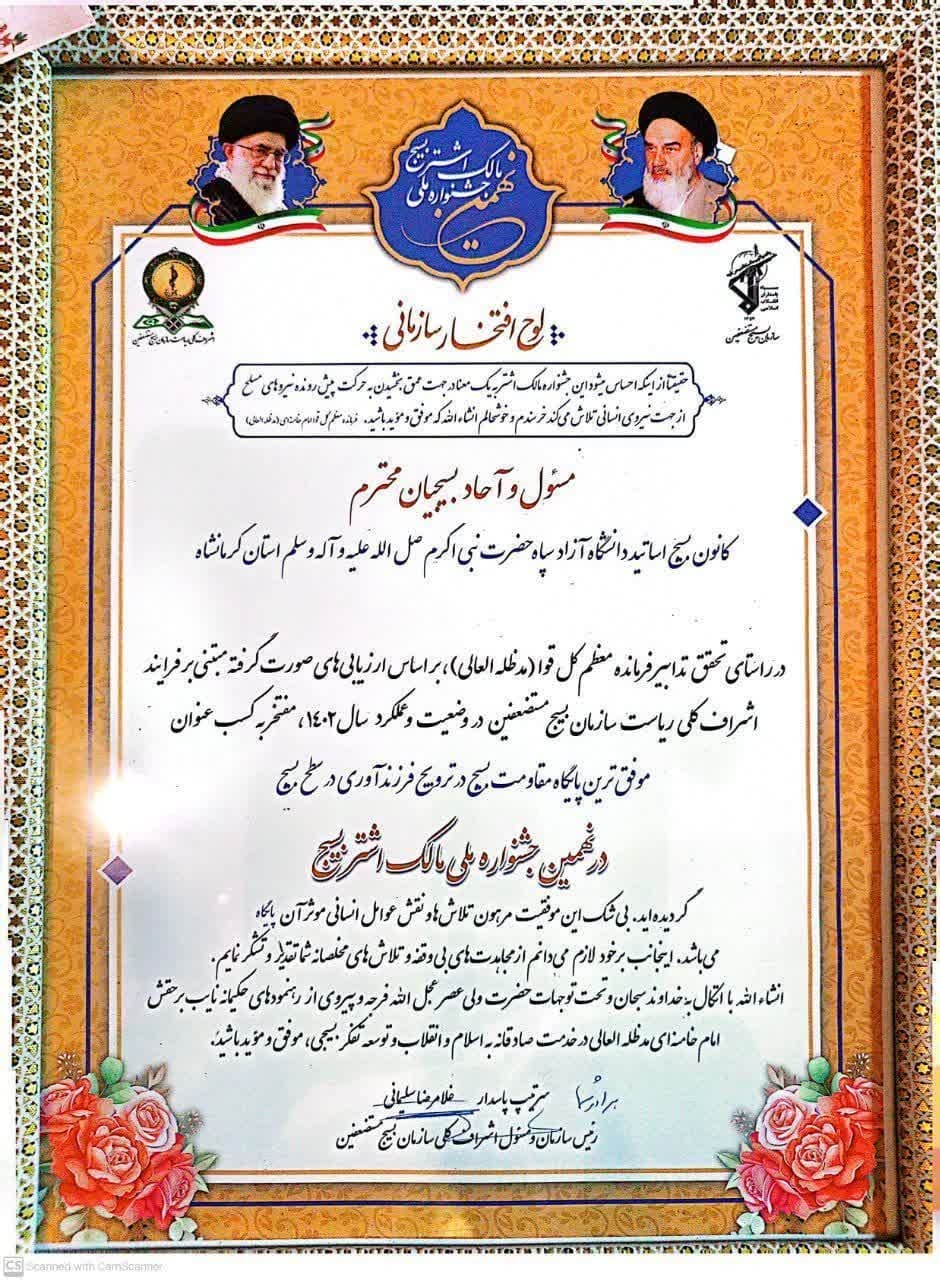 نهمین جشنواره ملی مالک اشتر بسیج
سپاه پاسداران انقلاب اسلامی
سازمان بسیج مستضعفین
اشراف کلی ریاست سازمان بسیج مستضعفین
لوح افتخار سازمانی
حقیقتاً از اینکه احساس میشود این جشنواره مالک اشتر به یک معنا در جهت عمق بخشیدن به حرکت پیش رونده نیروهای مسلح
از جهت نیروی انسانی تلاش می‌کند خرسندم و خوشحالم انشاء الله که موفق و مؤید باشید. فرمانده معظم کل قوا امام خامنه‌ای (مدظله العالی)
مسئول و آحاد بسیجیان محترم
کانون بسیج اساتید دانشگاه آزاد سپاه حضرت نبی اکرم صل الله علیه و آله وسلم استان کرمانشاه
در راستای تحقق تدابیر فرمانده معظم کل قوا (مدظله العالی)، بر اساس ارزیابی‌های صورت گرفته مبتنی بر فرایند
اشراف کلی ریاست سازمان بسیج مستضعفین در وضعیت و عملکرد سال ۱۴۰۲، مفتخر به کسب عنوان
موفق ترین پایگاه مقاومت بسیج در ترویج فرزندآوری در سطح بسیج
در نهمین جشنواره ملی مالک اشتر بسیج
گردیده‌اید. بی شک این موفقیت مرهون تلاش‌ها و نقش عوامل انسانی موثر آن پایگاه
می‌باشد. اینجانب بر خود لازم می‌دانم از مجاهدت‌های بی‌وقفه و تلاش‌های مخلصانه شما تقدیر و تشکر نمایم.
انشاء الله با اتکال به خداوند سبحان و تحت توجهات حضرت ولی عصر عجل الله فرجه و پیروی از رهنمودهای حکیمانه نایب برحقش
امام خامنه‌ای مدظله العالی در خدمت صادقانه به اسلام و انقلاب و توسعه تفکر بسیجی، موفق و مؤید باشید.
برادر شما
سرتیپ پاسدار غلامرضا سلیمانی
رئیس سازمان و مسئول اشراف کلی سازمان بسیج مستضعفین
CS Scanned with CamScanner